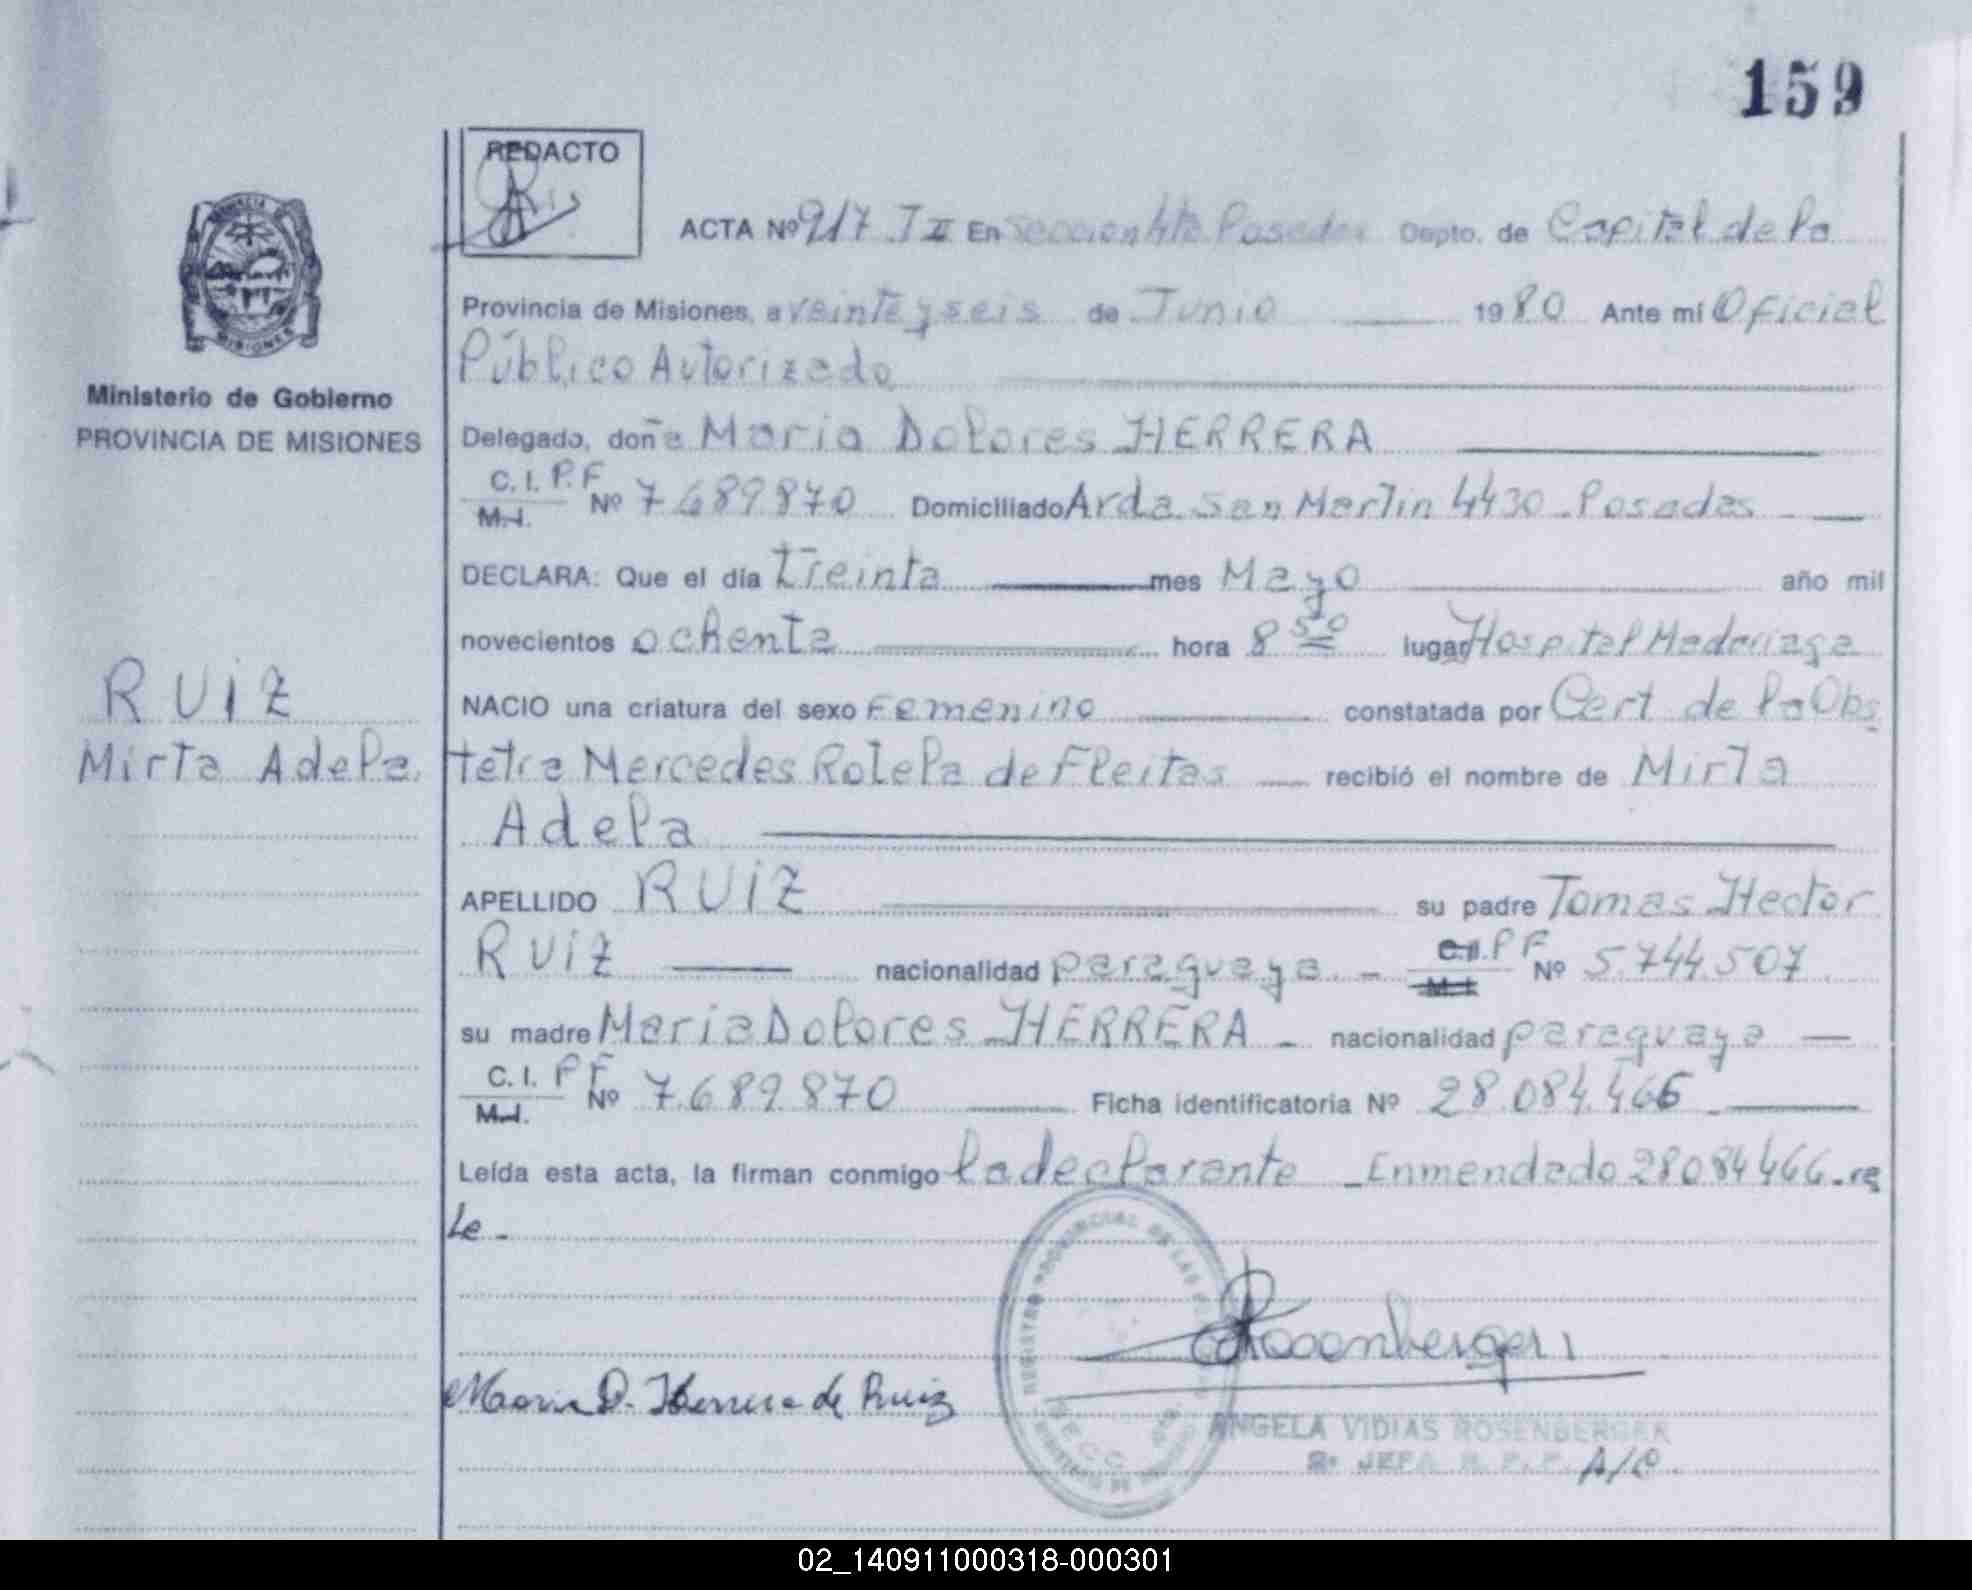 159
REDACTO
ACTA Nº 917 T II En Sección 4ta Posadas Depto. de Capital de la
Provincia de Misiones, a veinte y seis de Junio 1980 Ante mí Oficial
Público Autorizado
Ministerio de Gobierno
PROVINCIA DE MISIONES
Delegado, doña Maria Dolores HERRERA
C. I. P. F
M. I. Nº 7.689.870 Domiciliado Avda. San Martin 4430 - Posadas
DECLARA: Que el día treinta mes Mayo año mil
novecientos ochenta hora 8 50 lugar Hospital Madariaga
NACIO una criatura del sexo Femenino constatada por Cert de la Obs
tetra Mercedes Rolela de Fleitas recibió el nombre de Mirta
Adela
RUIZ
Mirta Adela.
APELLIDO RUIZ su padre Tomas Hector
RUIZ nacionalidad paraguaya - C. I. P F
M. I. Nº 5.744.507
su madre Maria Dolores HERRERA - nacionalidad paraguaya
C. I. P F
M. I. Nº 7.689.870 Ficha identificatoria Nº 28.084.466
Leída esta acta, la firman conmigo la declarante - Enmendado 28084466 - va
le -
REGISTRO PROVINCIAL DE LAS
Maria D. Herrera de Ruiz
Rosenberger
ANGELA VIDIAS ROSENBERGER
2º JEFA R. P. P. A/C.
02_140911000318-000301